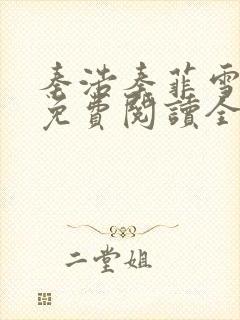 秦浩秦菲雪
免費閱讀全
二堂姐